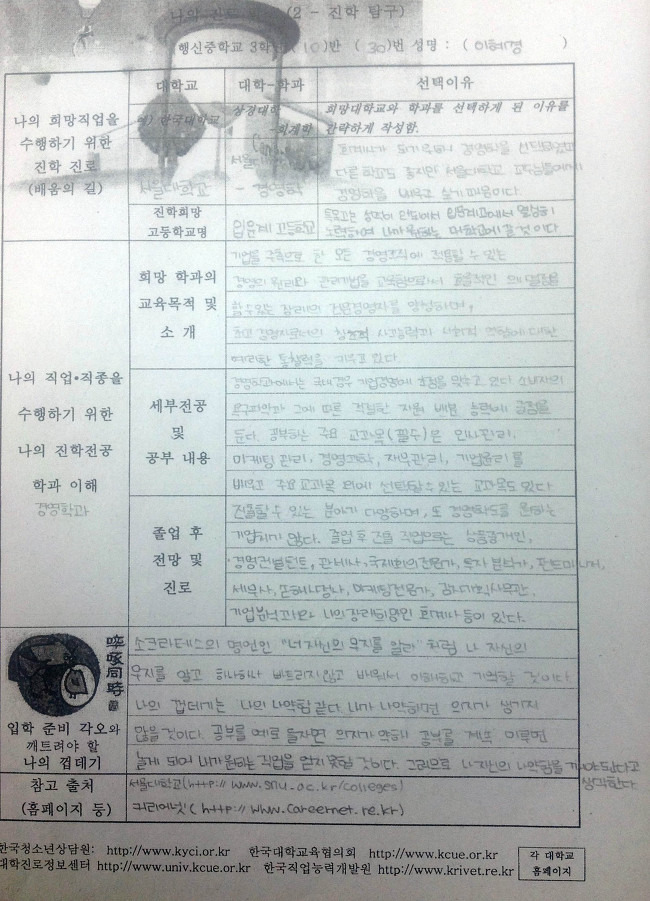 나의 진로 (2 - 진학 탐구)
행신중학교 3학년 (10)반 (30)번 성명 : (이혜경)
대학교 대학-학과 선택이유
나의 희망직업을
수행하기 위한
진학 진로
(배움의 길)
예) 한국대학교 상경대학 -회계학
희망대학교와 학과를 선택하게 된 이유를
간략하게 작성함.
서울대학교 - 경영학
회계사가 되기 위해서 경영학을 선택하였고
다른 학교도 좋지만 서울대학교 교수님들에게
경영학을 배우고 싶기 때문이다.
진학희망
고등학교명
인문계 고등학교
노력하여 내가 원하는 대학교에 갈 것이다.
나의 직업•직종을
수행하기 위한
나의 진학전공
학과 이해
경영학과
희망 학과의
교육목적 및
소 개
기업을 주축으로 한 모든 경영조직에 적용할 수 있는
경영의 원리와 관리기법을 교육함으로써 효율적인 의사결정을
할 수 있는 장래의 전문경영자를 양성하며,
최고 경영자로서의 창의적 사고능력과 사회적 연관에 대한
예리한 통찰력을 기우고 있다.
세부전공
및
공부 내용
경영학과에서는 국내 경우 기업경영에 초점을 맞추고 있다 소비자의
욕구파악과 그에 따른 적절한 자원 배분 능력에 중점을
둔다. 공부하는 주요 교과목(필수)은 인사관리,
마케팅 관리, 경영과학, 재무관리, 기업윤리를
배우고 주요교과목 외에 선택할 수 있는 교과목도 있다
졸업 후
전망 및
진로
진출할 수 있는 분야가 다양하며, 또 경영학도를 원하는
기업하기 많다. 졸업 후 진출 직업으로는 상품중개인,
경영컨설턴트, 관세사, 국제회의전문가, 투자 분석가, 펀드매니저,
세무사, 손해사정사, 마케팅전문가, 감사기획사무관,
기업분석과와 나의 장래희망인 회계사 등이 있다.
啐啄同時
입학 준비 각오와
깨트려야 할
나의 껍데기
소크라테스의 명언인 "너 자신의 무지를 알라" 처럼 나 자신의
무지를 알고 하나하나 빠트리지 않고 배워서 이해하고 기억할 것이다
나의 껍데기는 나의 나약함 같다. 내가 나약하면 의지가 생기지
않을 것이다. 공부를 예로 들자면 의지가 약해 공부를 계속 미루면
늦게 되어 내가 원하는 직업을 얻지 못할 것이다. 그러므로 나 자신의 나약함을 깨야 된다고
생각한다.
참고 출처
(홈페이지 등)
서울대학교(http://www.snu.ac.kr/colleges)
커리어넷'(http://www.careernet.re.kr)
한국청소년상담원: http://www.kyci.or.kr 한국대학교육협의회 http://www.kcue.or.kr
대학진로정보센터 http://www.univ.kcue.or.kr 한국직업능력개발원 http://www.krivet.re.kr
각 대학교
홈페이지